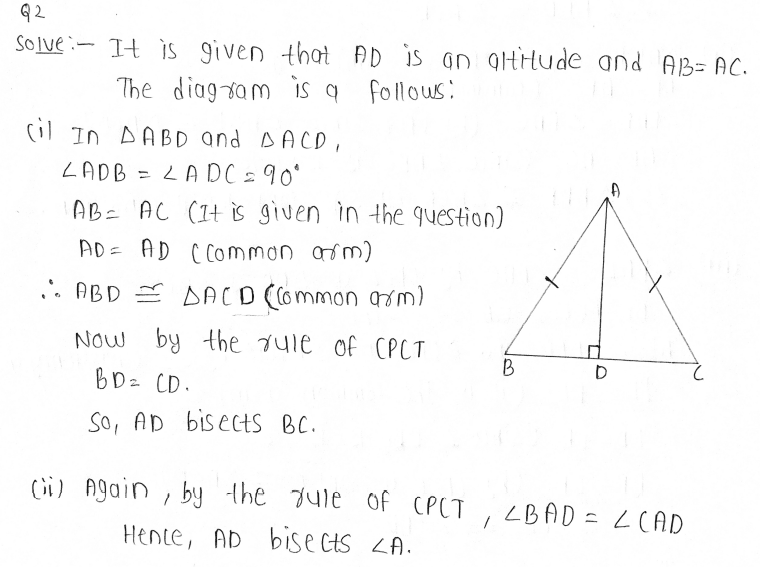 Q2
Solve:- It is given that AD is an altitude and AB= AC.
The diagram is a follows:
(i) In △ABD and △ACD,
∠ADB = ∠ADC = 90°
AB= AC (It is given in the question)
AD= AD (Common arm)
∴ ABD ≅ △ACD (Common arm)
Now by the rule of CPCT
BD= CD.
So, AD bisects BC.
(ii) Again, by the rule of CPCT, ∠BAD = ∠CAD
Hence, AD bisects ∠A.
A
B
D
C